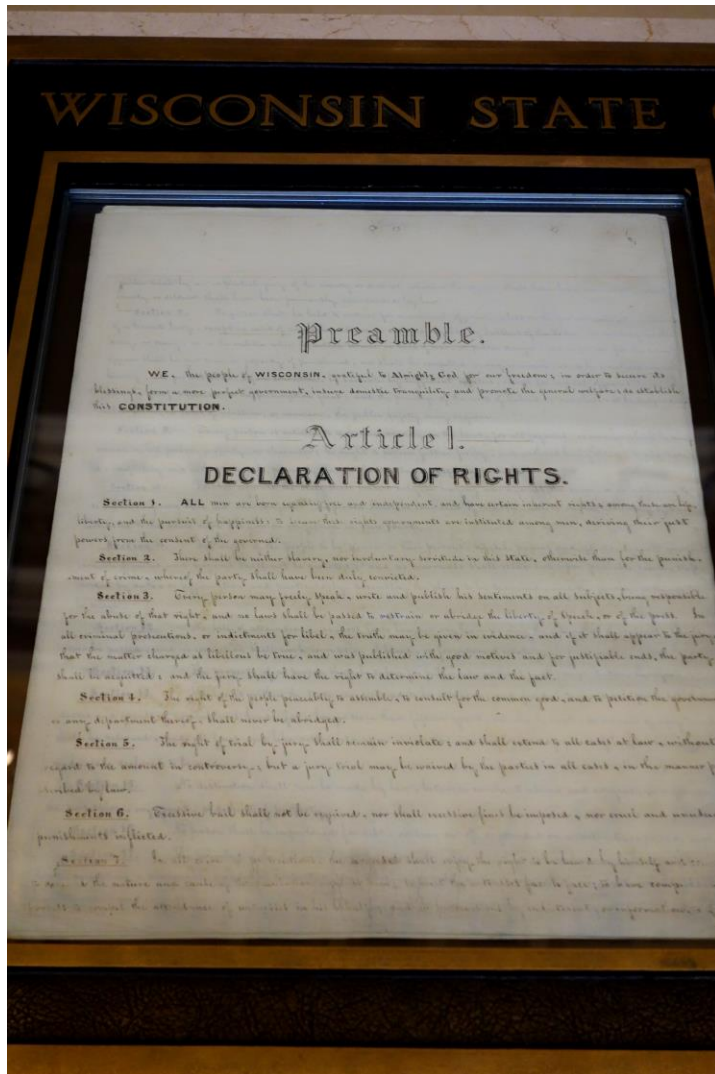 WISCONSIN STATE
Preamble.
WE, the people of WISCONSIN, grateful to Almighty God for our freedom; in order to secure its
blessings, form a more perfect government, insure domestic tranquility and promote the general welfare; do establish
this CONSTITUTION.
Article 1.
DECLARATION OF RIGHTS.
Section 1. ALL men are born equally free and independent, and have certain inherent rights; among these are life,
liberty, and the pursuit of happiness: to secure these rights governments are instituted among men, deriving their just
powers from the consent of the governed.
Section 2. There shall be neither slavery, nor involuntary servitude in this State, otherwise than for the punish-
ment of crime, whereof the party shall have been duly convicted.
Section 3. Every person may freely speak, write and publish his sentiments on all subjects, being responsible
for the abuse of that right, and no laws shall be passed to restrain or abridge the liberty of speech, or of the press. In
all criminal prosecutions, or indictments for libel, the truth may be given in evidence, and if it shall appear to the jury
that the matter charged as libellous be true, and was published with good motives and for justifiable ends, the party
shall be acquitted; and the jury shall have the right to determine the law and the fact.
Section 4. The right of the people peaceably to assemble, to consult for the common good, and to petition the governm
or any department thereof, shall never be abridged.
Section 5. The right of trial by jury shall remain inviolate; and shall extend to all cases at law, without
regard to the amount in controversy; but a jury trial may be waived by the parties in all cases, in the manner p
scribed by law.
Section 6. Excessive bail shall not be required, nor shall excessive fines be imposed, nor cruel and unusual
punishments inflicted.
Section 7. In all criminal prosecutions, the accused shall enjoy the right to be heard by himself and
the nature and cause of the accusation against him; to meet the witnesses face to face; to have comp
to compel the attendance of witnesses in his behalf; and in prosecutions by indictment, or information,